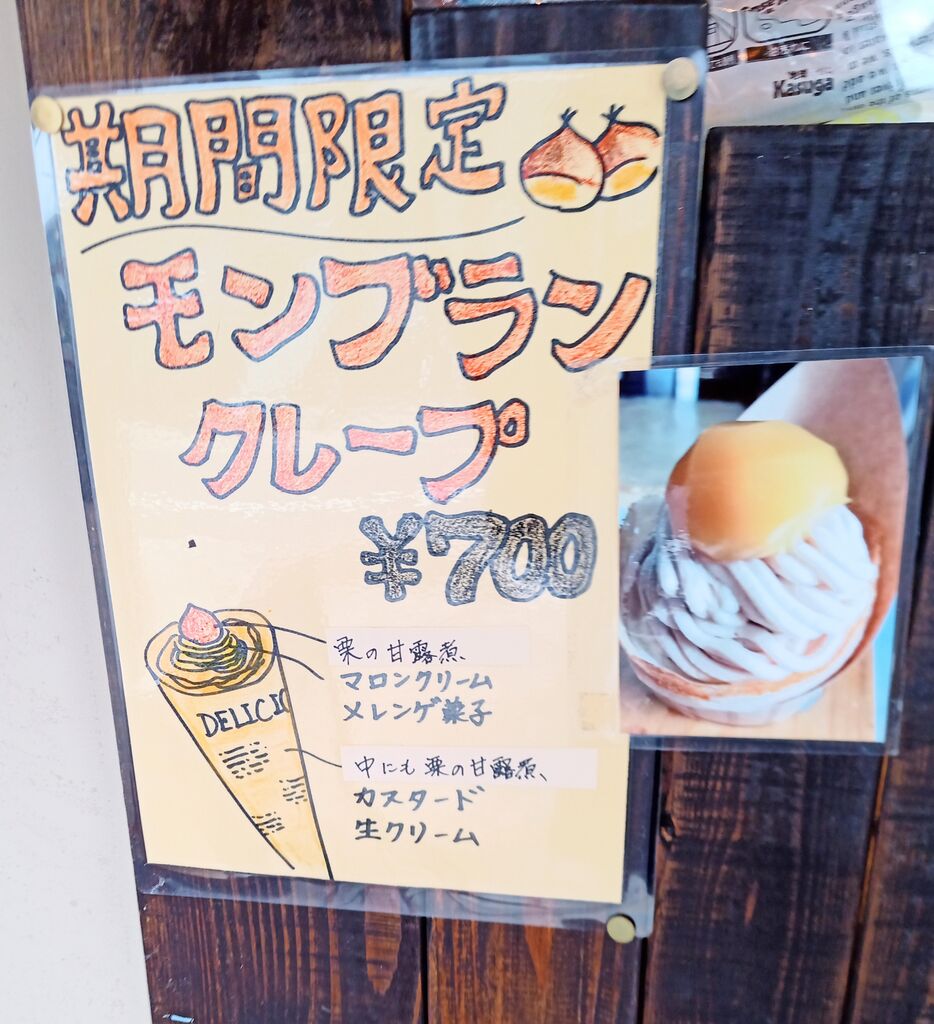 期間限定
モンブラン
クレープ
¥700
栗の甘露煮、
マロンクリーム
メレンゲ菓子
DELICIO
中にも栗の甘露煮、
カスタード
生クリーム
Kasuga